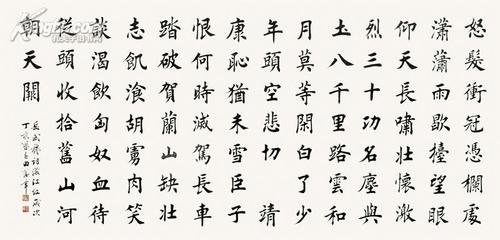 怒髮衝冠憑欄處
瀟瀟雨歇擡望眼
仰天長嘯壯懷激
烈三十功名塵與
土八千里路雲和
月莫等閑白了少
年頭空悲切 靖
康恥猶未雪臣子
恨何時滅駕長車
踏破賀蘭山缺壯
志飢湌胡虜肉笑
談渴飲匈奴血待
從頭收拾舊山河
朝天闕
岳武穆詞滿江紅歲次